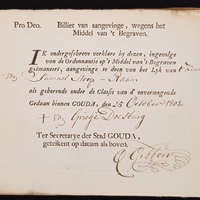 Pro Deo. Billiet van aangevinge, wegens het
Middel van 't Begraven.
IK ondergeschreve verklare by dezen, ingevolge
van de Ordonnantie op 't Middel van 't Begraven
geëmaneert, aangevinge te doen van het Lyk van
Samuel
als gehorende onder de Classe van d' onvermogende
Gedaan binnen GOUDA, den 25 October 1802
Ter Secretarye der Stad GOUDA,
geteikent op datum als boven.